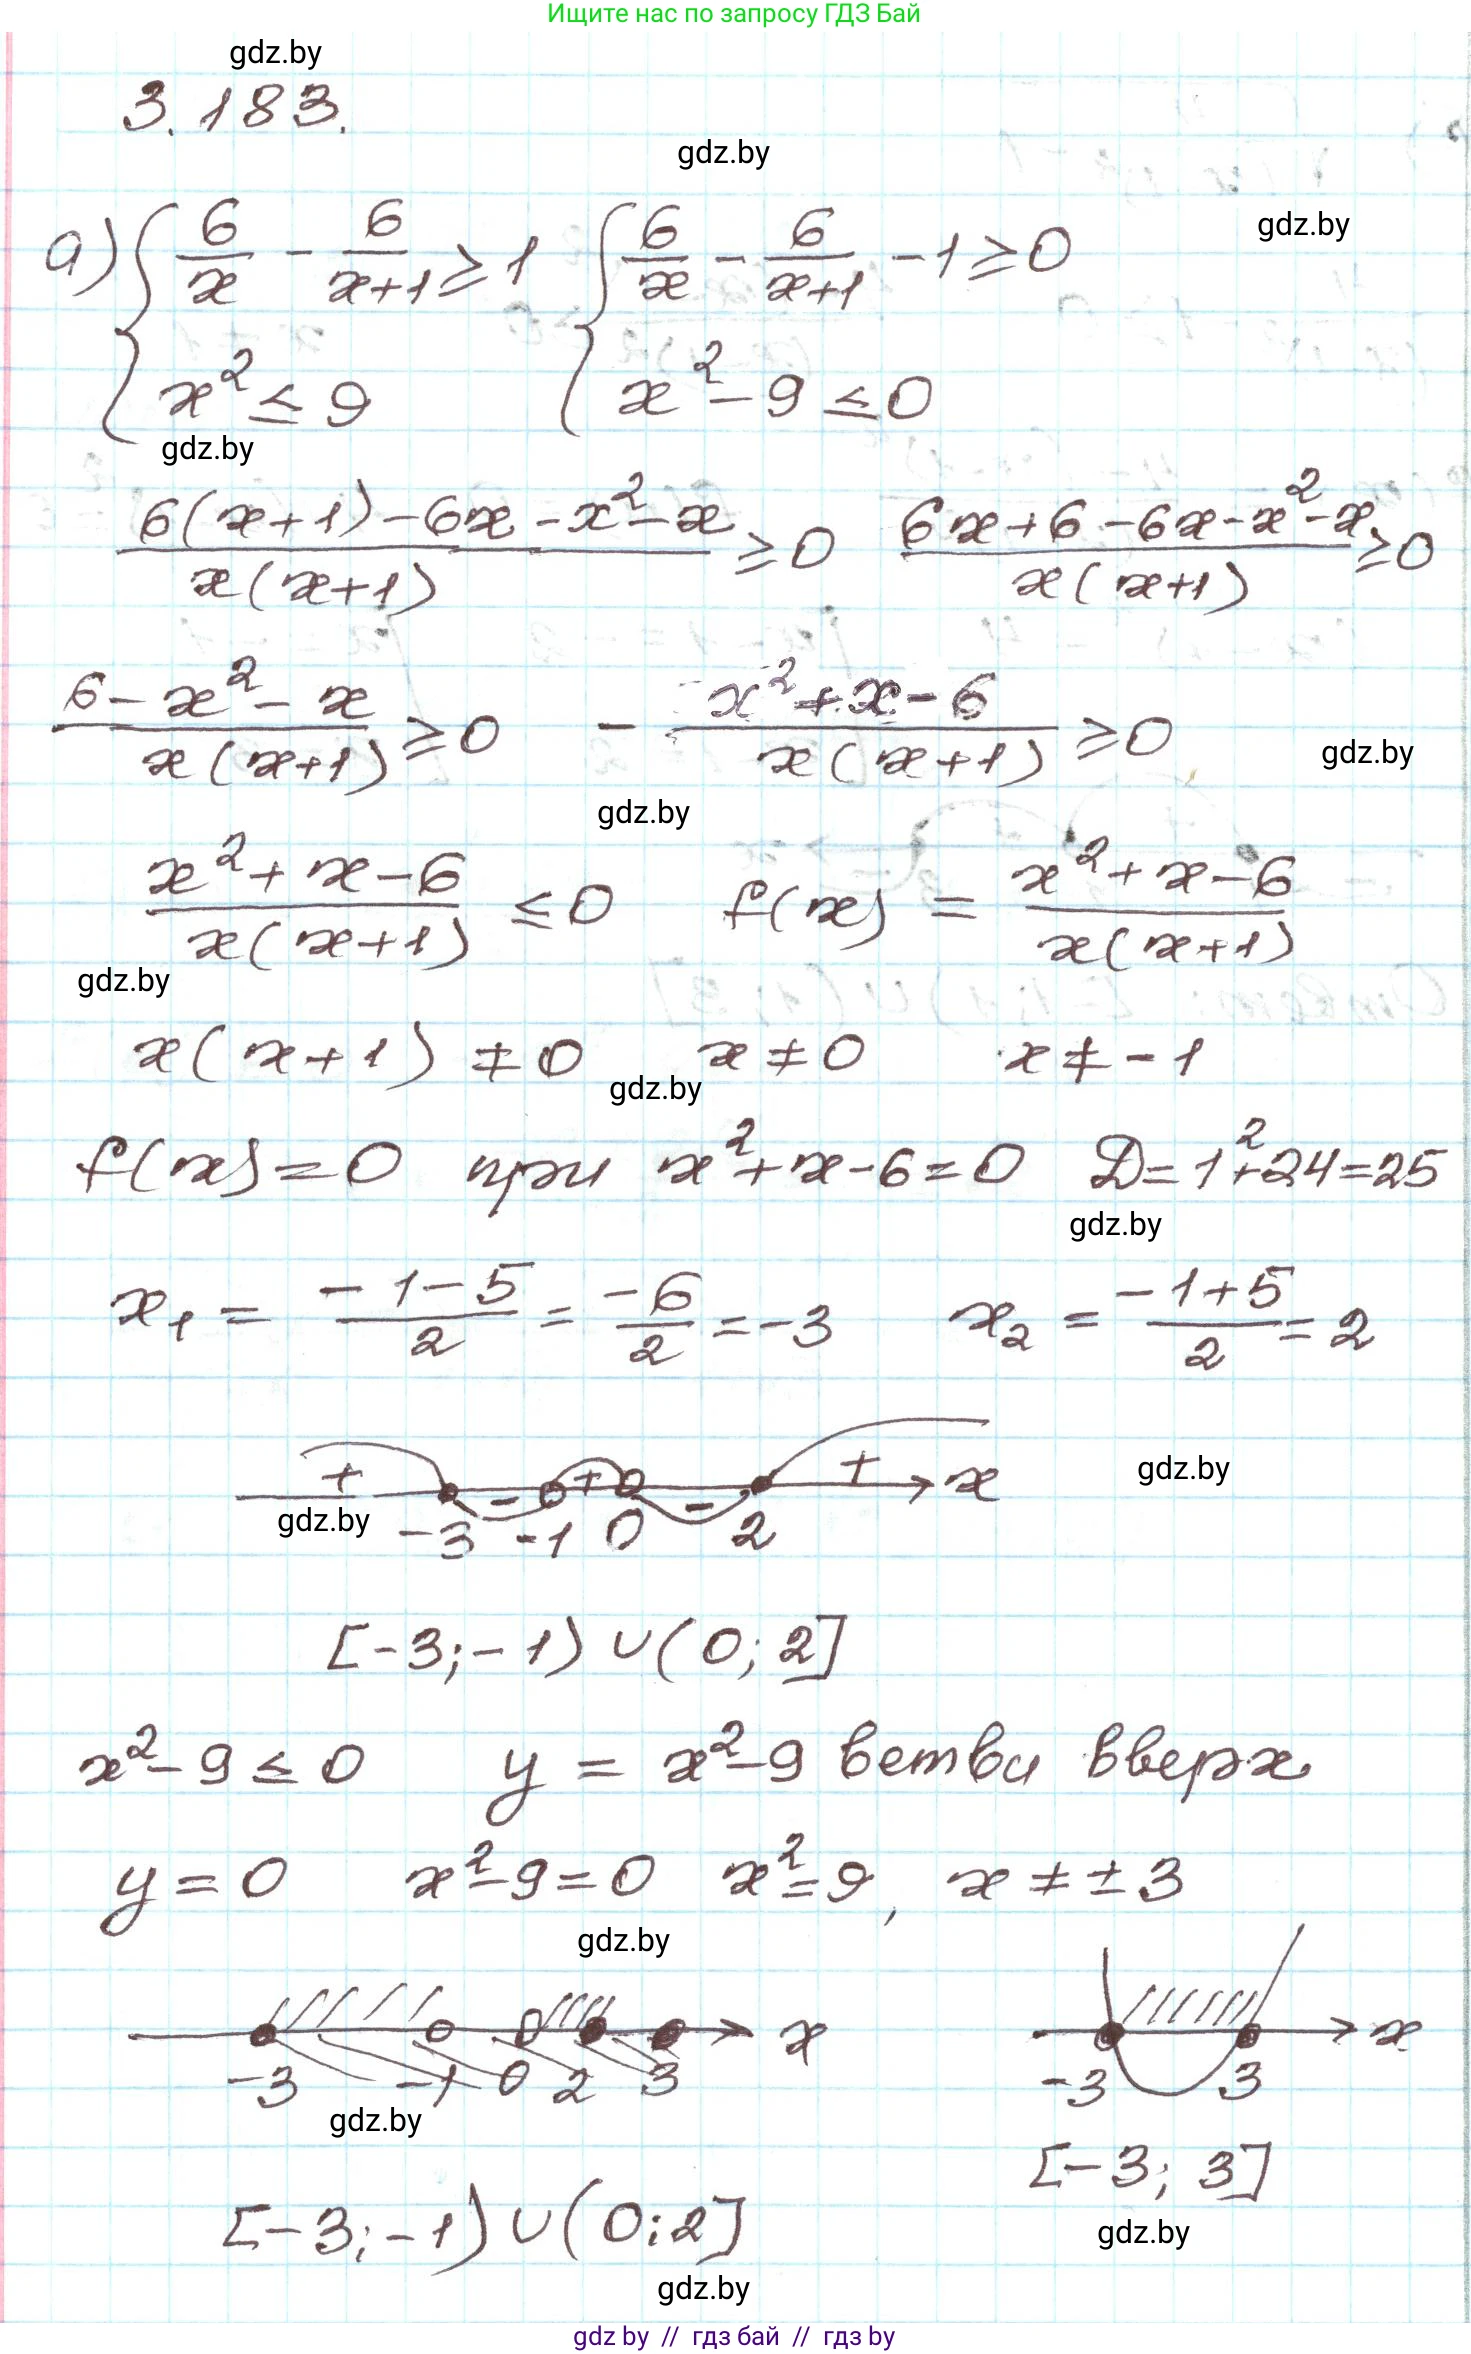 Ищите нас по запросу ГДЗ Бай
gdz.by
3.183.
gdz.by
а) { 6/x - 6/(x+1) ≥ 1 { 6/x - 6/(x+1) - 1 ≥ 0
gdz.by
x² ≤ 9 x² - 9 ≤ 0
gdz.by
(6(x+1) - 6x - x² - x)/(x(x+1)) ≥ 0 (6x + 6 - 6x - x² - x)/(x(x+1)) ≥ 0
(6 - x² - x)/(x(x+1)) ≥ 0 - (x² + x - 6)/(x(x+1)) ≥ 0
gdz.by
gdz.by
(x² + x - 6)/(x(x+1)) ≤ 0 f(x) = (x² + x - 6)/(x(x+1))
gdz.by
x(x+1) ≠ 0 x ≠ 0 x ≠ -1
gdz.by
f(x) = 0 при x² + x - 6 = 0 D = 1² + 24 = 25
gdz.by
x₁ = (-1-5)/2 = -6/2 = -3 x₂ = (-1+5)/2 = 2
+ - + - + x
gdz.by
gdz.by
-3 -1 0 2
[-3; -1) ∪ (0; 2]
x² - 9 ≤ 0 y = x² - 9 ветви вверх
y = 0 x² - 9 = 0 x² = 9, x ≠ ± 3
gdz.by
x x
-3 -1 0 2 3 -3 3
gdz.by
[-3; 3]
[-3; -1) ∪ (0; 2]
gdz.by
gdz.by
gdz by // гдз бай // гдз by